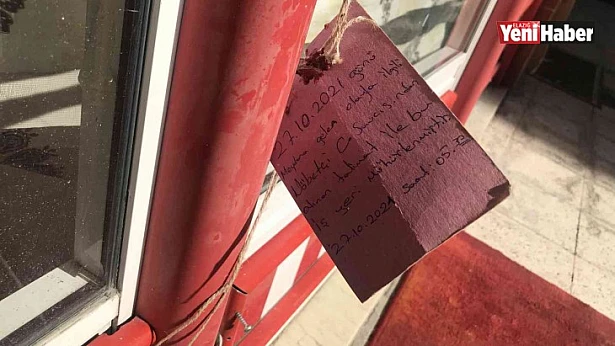 ELAZIĞ
YeniHaber
27.10.2021 günü
Meydana gelen olayla ilgili
Nöbetçi C. Savcısından
Alınan talimat ile bu
iş yeri mühürlenmiştir.
27.10.2021 saat: 05.